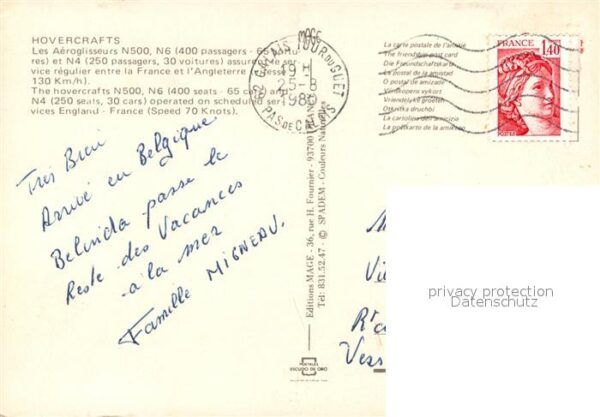 HOVERCRAFTS
Les Aéroglisseurs N500, N6 (400 passagers - 65
res) et N4 (250 passagers, 30 voitures) assurent le ser-
vice régulier entre la France et l'Angleterre
130 Km/h).
The hovercrafts N500, N6 (400 seats - 65 cars) and
N4 (250 seats, 30 cars) operated on scheduled ser-
vices England - France (Speed 70 Knots).
Très Bien
Arrivé en Belgique
Belinda passe le
Reste des Vacances
à la mer
Famille MIGNEAU.
MAGE
62 CALAIS TOUR DU GUET
1980
PAS DE CALAIS
Editions MAGE - 36, rue H. Fournier - 93700
Tél: 831.52.47 - © SPADEM - Couleurs Naturelles
ESCUDO DE ORO
La carte postale de l'amitié
The friendship post card
Die Freundschaftskarte
La postal de la amistad
O postal de amizade
Vriendelyke groeten
La cartolina dell'amicizia
FRANCE
1,40
M
Vi
R
Vess
privacy protection
Datenschutz